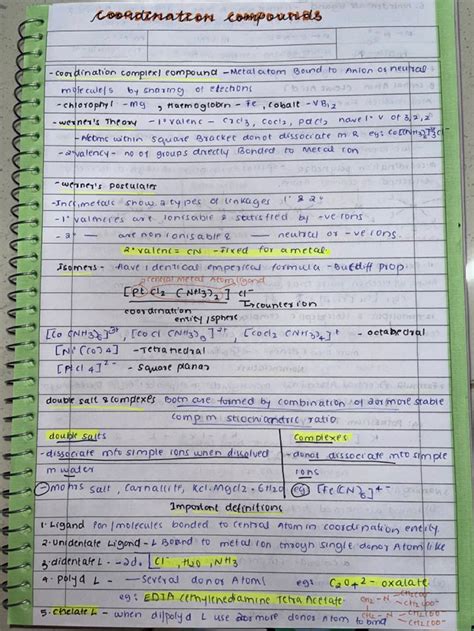 coordination compounds
-coordination complex/ compound -Metal atom Bound to Anion or neutral
molecule/s by sharing of electrons
-chlorophyl -mg, Haemoglobin -Fe, cobalt -VB12
-werner's Theory - 1° valenc - CrCl3, COCl2, PdCl2 have 1° V of 3,2,2
-Atoms within square Bracket donot dissociate in R eg: Co[(NH3)6]3Cl-
-2° valency - no of groups directly Bonded to Metal ion
-werner's postulates
metals show 2 types of linkages 1° & 2°
-1° valencies are ionisable & satisfied by -ve ions
-2° — are non ionisable & — neutral or -ve ions.
2° valenc = CN -fixed for a metal
Isomers - Have identical emperical formula -But diff prop.
central Metal Atom ligand
[Pt Cl2 (NH3)2] Cl-
coordination counter ion
entity/sphere
[Co (NH3)6]3+, [CO Cl (NH3)5]2+, [COCl2 (NH3)4]+ - octahedral
[Ni (CO)4] -Tetrahedral
[PtCl4]2- - square planar
double salt & complexes Both are formed by combination of 2 or more stable
comp in stiochiometric ratio
double salts
Complexes
-dissociate into simple ions when dissolved
in water
-donot dissociate into simple
ions
-mohrs salt, Carnallite, KCl.MgCl2.6H2O
eg [Fe(CN)6]4-
Important definitions
1. Ligand ion/molecules bonded to central Atom in coordination entity.
2. unidentate Ligand - L Bound to metal ion throygh single donor Atom like
Cl-, H2O, NH3
3. didentate L - 2d.
4. polyd L — Several donor Atoms eg: C2O42- oxalate.
eg: EDTA Ethylenediamine Tetra Acetate
5. chelate L - when di/poly d L use 2 or more donor Atom to bind